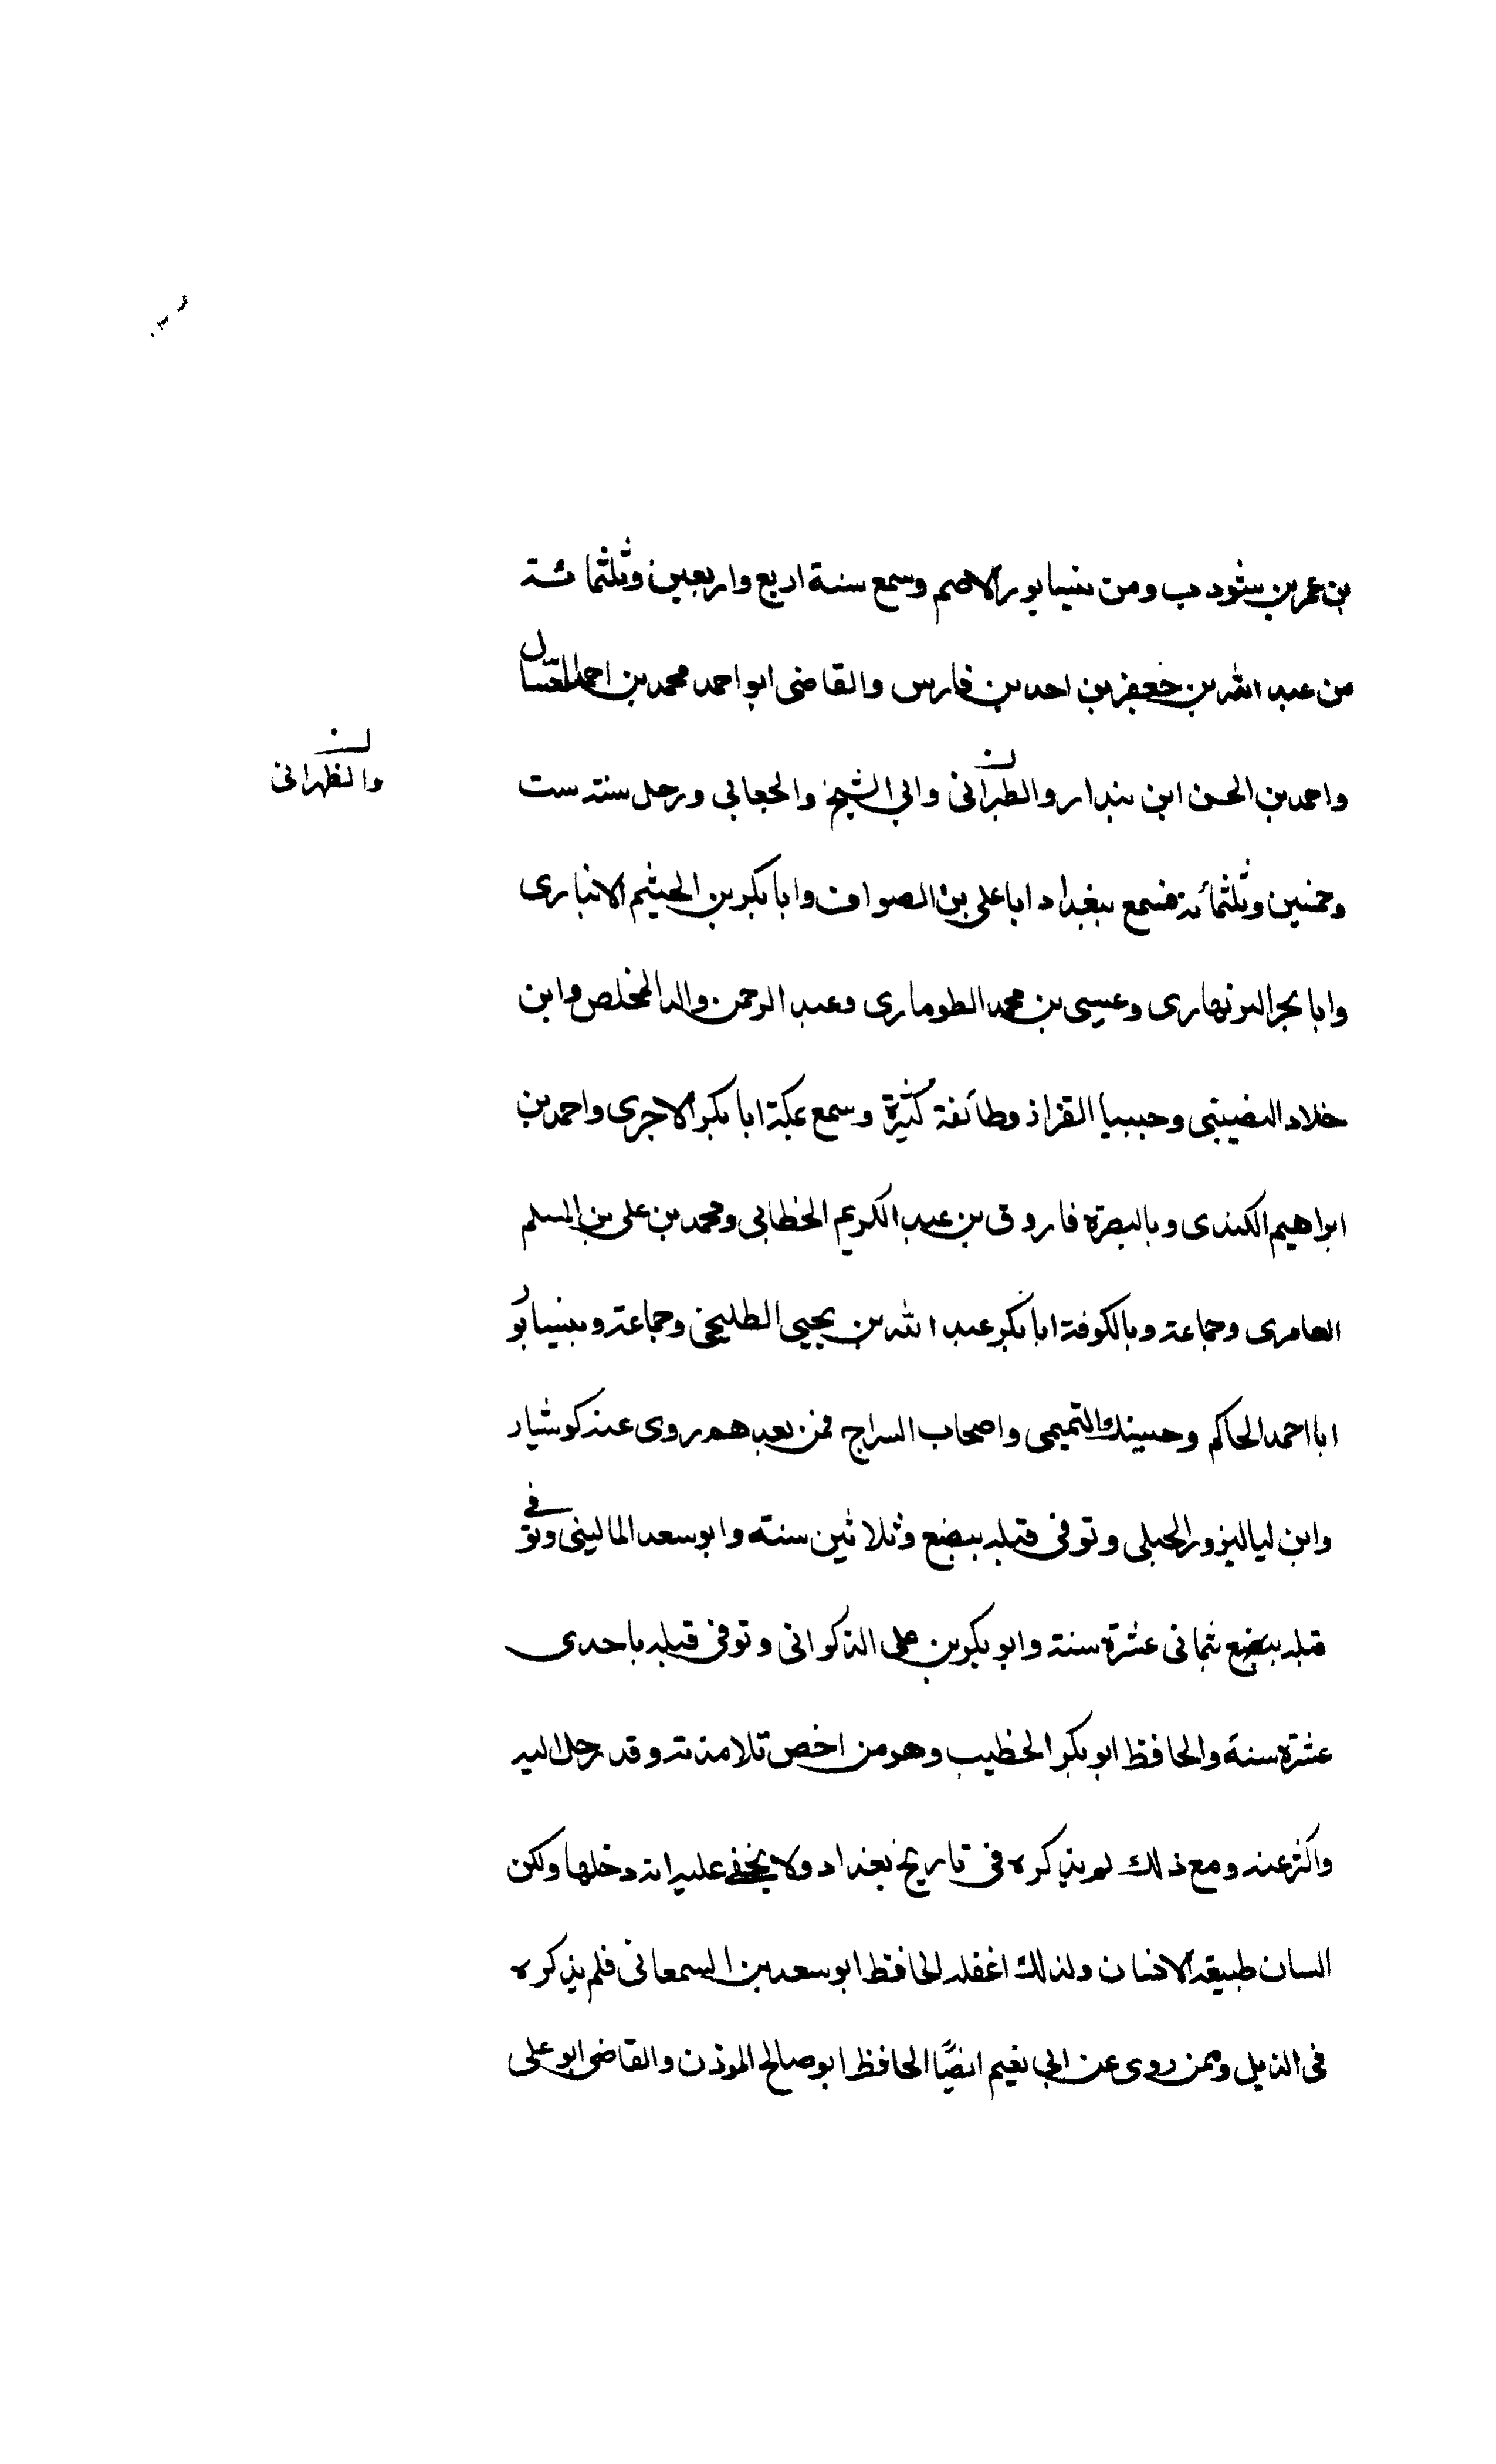 بن عمر بن شوذب ومن نيسابور الاصم وسمع سنة اربع واربعين وثلثمائة
من عبد الله بن جعفر بن احمد بن فارس والقاضى ابو احمد محمد بن احمد العسّال
واحمد بن الحسن ابن بندار والطبرانى وابى الشيخ والجعابى ورحل سنة ست
والظهرانى
وخمسين وثلثمائة فسمع ببغداد ابا على بن الصواف وابا بكر بن الهيثم الانبارى
وابا بحر البربهارى وعيسى بن محمد الطومارى وعبد الرحمن والد المخلص وابن
خلاد النصيبى وحبيبا القزاز وطائفة كثيرة وسمع بمكة ابا بكر الاجرى واحمد بن
ابراهيم الكندى وبالبصرة فاروق بن عبد الكريم الخطابى ومحمد بن على بن المسلم
العامرى وجماعة وبالكوفة ابا بكر عبد الله بن يحيى الطلحى وجماعة وبنيسابور
ابا احمد الحاكم وحسينك التميمى واصحاب السراج فمن بعدهم روى عنه كوشيار
وابن لياليزور الجبلى وتوفى قبله ببضع وثلاثين سنة وابو سعد المالينى وتوفى
قبله ببضع ثمانى عشرة سنة وابو بكر بن على الذكوانى وتوفى قبله باحدى
عشرة سنة والحافظ ابو بكر الخطيب وهو من اخص تلامذته وقد رحل اليه
واكثر عنه ومع ذلك لم يذكره فى تاريخ بغداد ولا يخفى عليه انه دخلها ولكن
النسان طبيعة الانسان ولذلك اغفله الحافظ ابو سعد بن السمعانى فلم يذكره
فى الذيل وممن روى عن ابى نعيم ايضًا الحافظ ابو صالح الموذن والقاضى ابو على